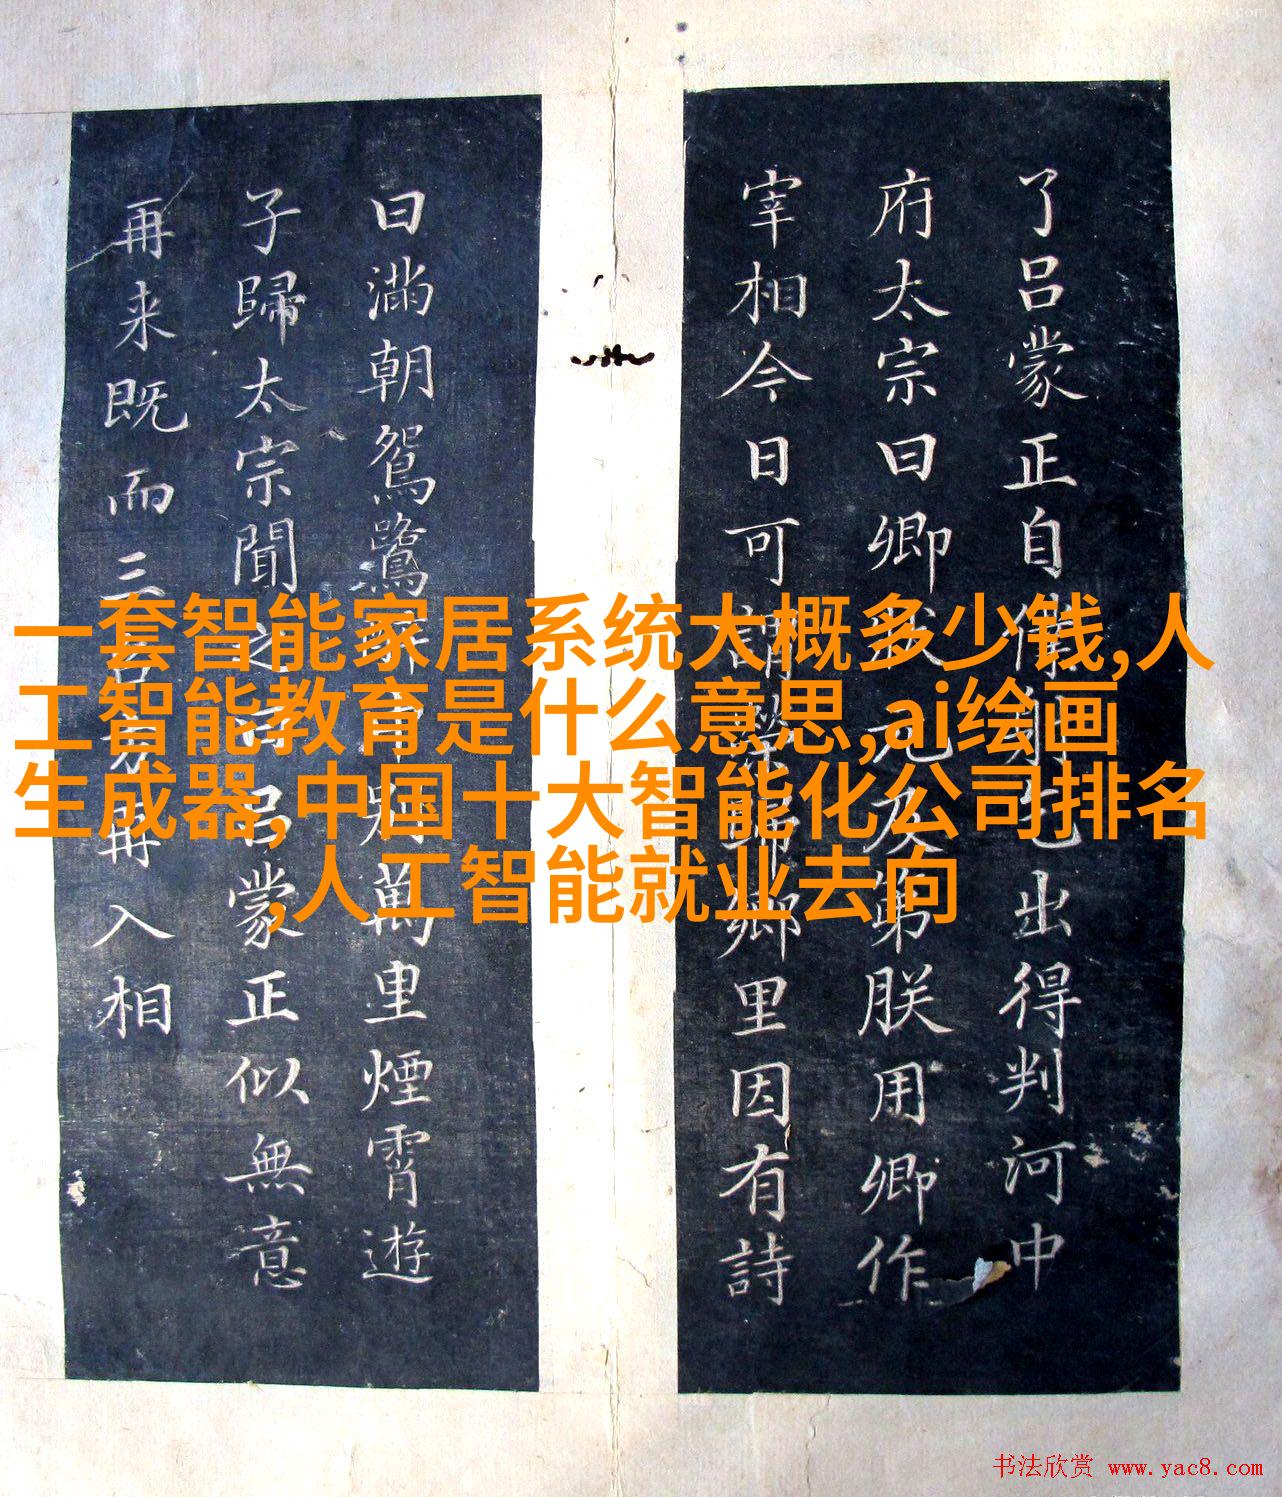 一套智能家居系统大概多少钱,人
工智能教育是什么意思,ai绘画
生成器,中国十大智能化公司排名
,人工智能就业去向
了吕蒙正自出得判河中
府太宗曰卿元及第朕用卿作
宰相今日可謂歸鄉里因有詩
曰滿朝鴛鷺中別萬里煙霄遊
子歸太宗聞之吕蒙正似無意
再来既而三再入相
书法欣赏 www.yac8.com